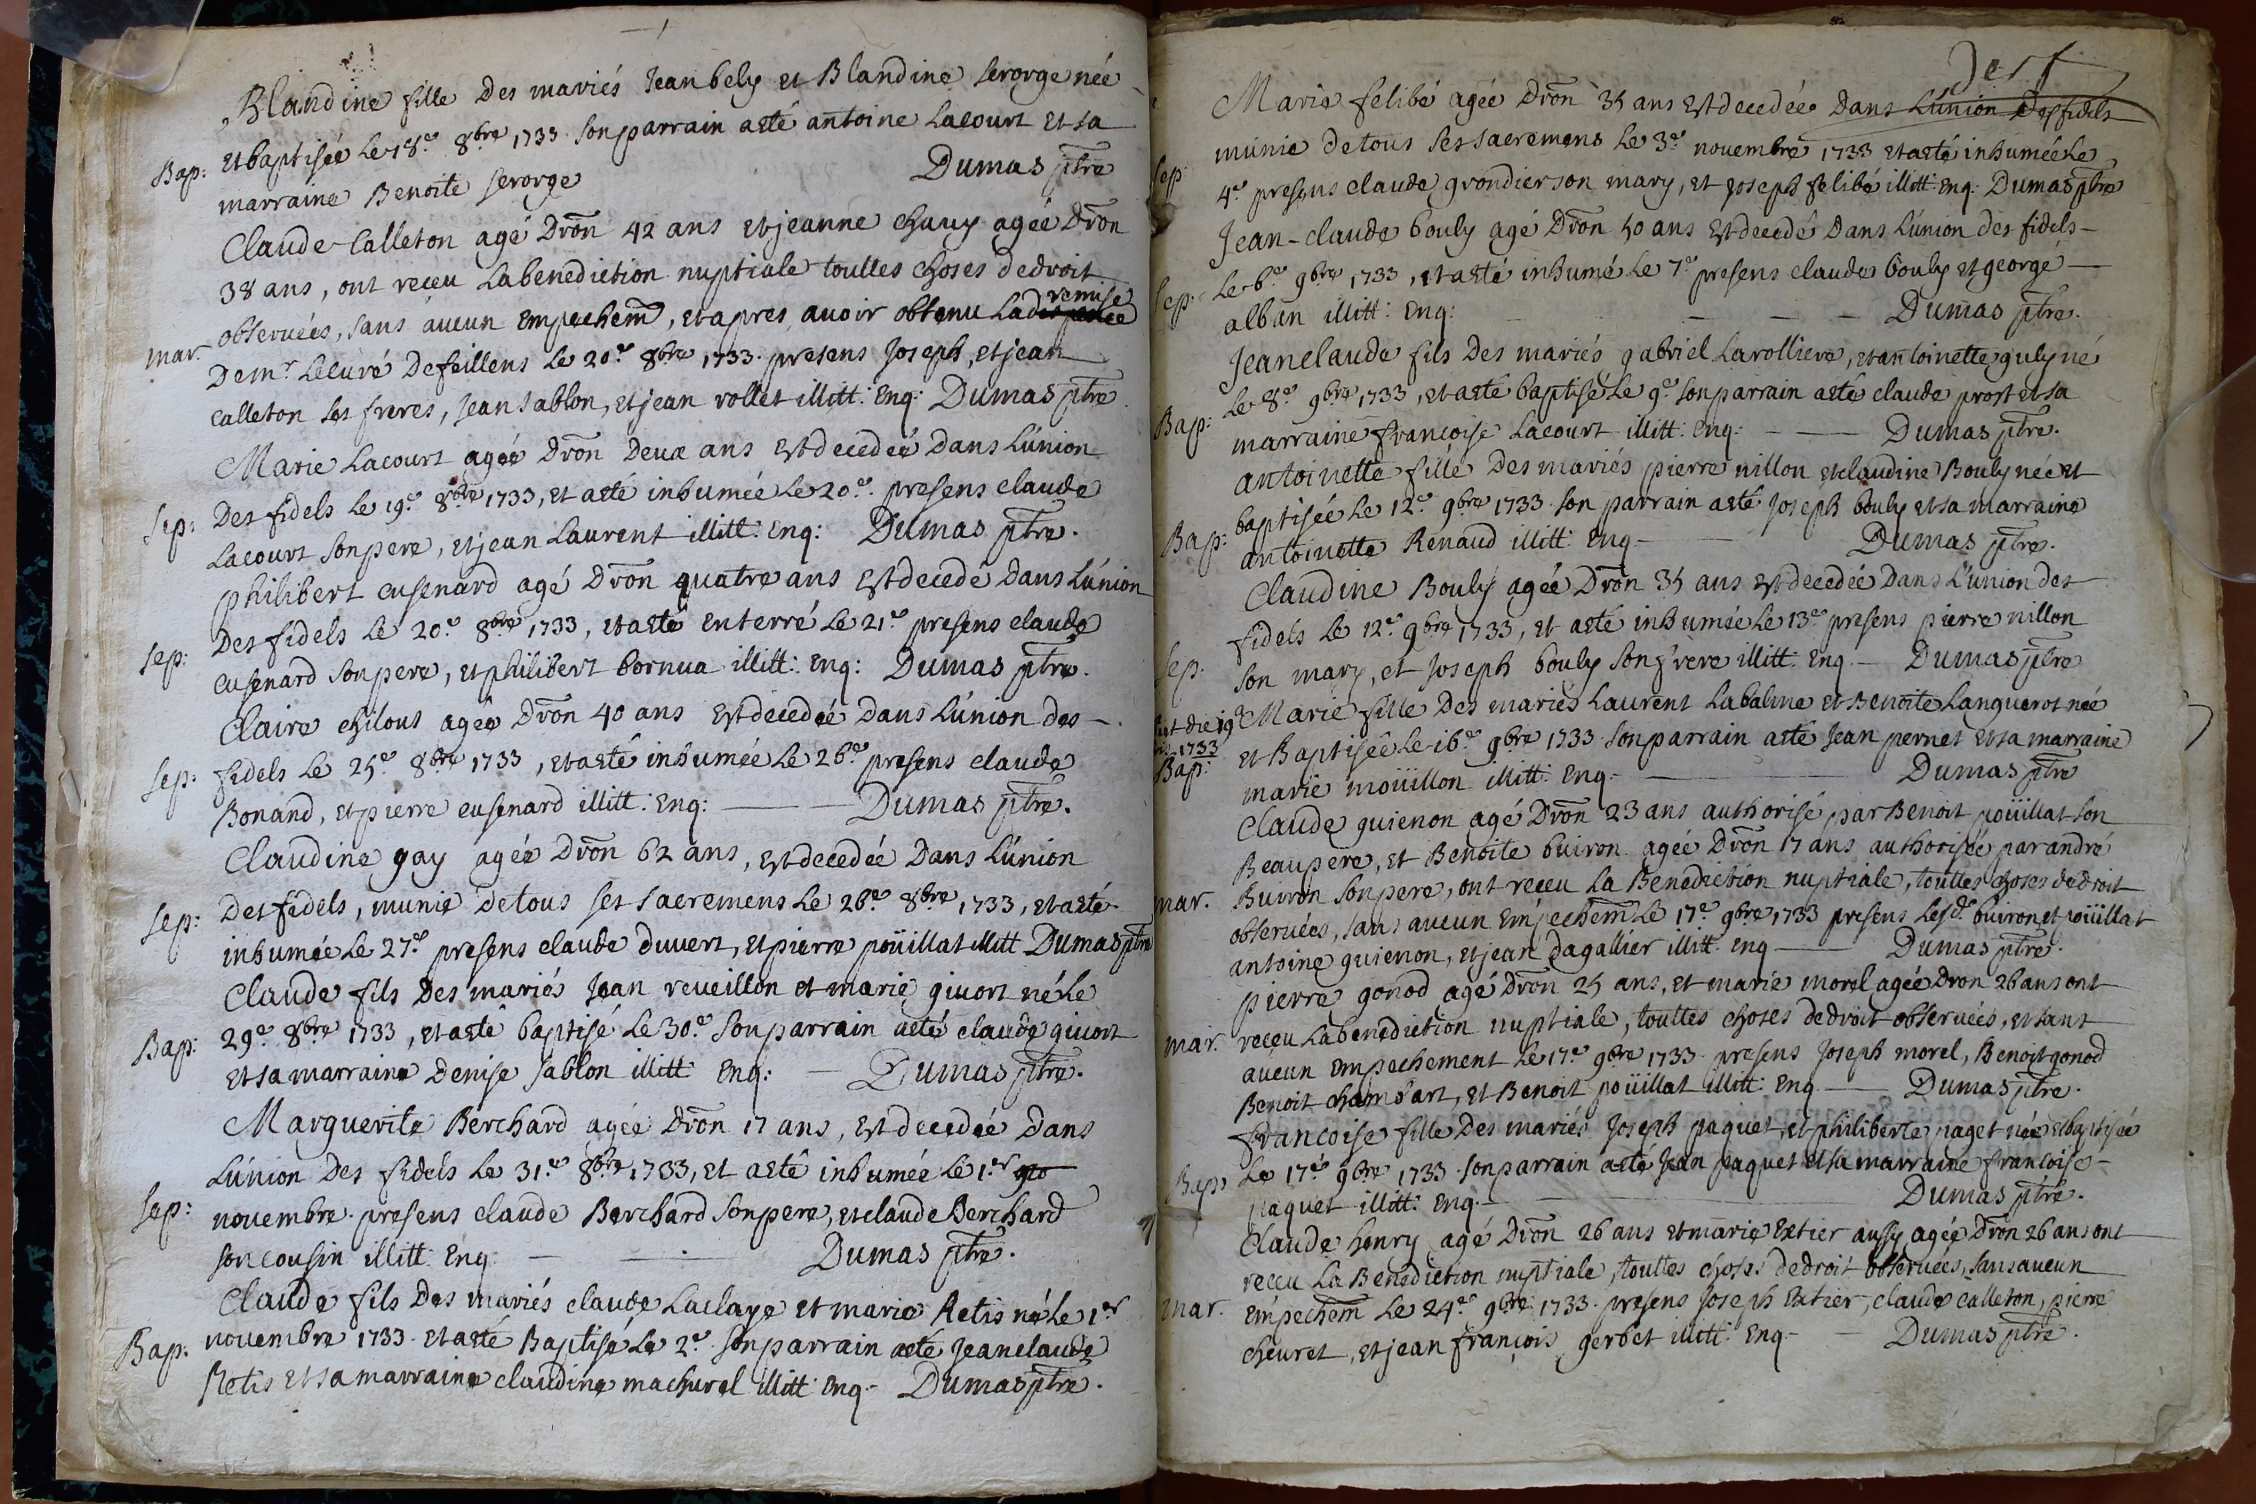 Blandine fille Des mariés Jean bely et Blandine serorge née
Bap: et baptisée Le 18.e 8bre 1733 son parrain a eté antoine Lacourt et sa
marraine Benoite serorge Dumas ptre
Claude Calleton agé Dron 42 ans et jeanne chavy agée Dron
38 ans, ont receu La benediction nuptiale touttes choses de droit
observées, sans aucun empechem, et apres avoir obtenu La remise
mar. De mr Le curé De feillens Le 20.e 8bre 1733. presens Joseph, et jean
calleton ses freres, Jean sablon, et jean rollet illitt: Enq: Dumas ptre
Marie Lacourt agée Dron Deux ans Est decedée Dans L'union
sep: Des fidels Le 19.e 8bre 1733, et a eté inhumée Le 20.e presens claude
Lacourt son pere, et jean Laurent illitt: Enq: Dumas ptre.
philibert eusenard agé Dron quatre ans Est decedé Dans L'union
sep: Des fidels Le 20.e 8bre 1733, et a eté enterré Le 21.e presens claude
eusenard son pere, et philibert bornua illitt: Enq: Dumas ptre.
Claire chilous agée Dron 40 ans Est decedée Dans L'union des
sep: fidels Le 25.e 8bre 1733, et a eté inhumée Le 26.e presens claude
Bonand, et pierre eusenard illitt: Enq: Dumas ptre.
Claudine gay agée Dron 62 ans, est decedée Dans L'union
sep: Des fidels, munie de tous ses sacremens Le 26.e 8bre 1733, et a eté
inhumée Le 27.e presens claude duvert, et pierre poüillat illitt Dumas ptre
Claude fils Des mariés Jean reveillon et marie givort né Le
Bap: 29.e 8bre 1733, et a eté baptisé Le 30.e son parrain a eté claude givort
et sa marraine Denise sablon illitt: Enq: Dumas ptre.
Marguerite Berchard agée Dron 17 ans, Est decedée Dans
L'union Des fidels Le 31.e 8bre 1733, et a eté inhumée Le 1.er
sep: novembre. presens claude Berchard son pere, et claude Berchard
son cousin illitt: Enq Dumas ptre.
Claude fils Des mariés claude Laclaye et marie Retis né Le 1.er
Bap: novembre 1733 et a eté Baptisé Le 2.e son parrain a eté Jean claude
Retis et sa marraine claudine machurel illitt: Enq. Dumas ptre.
Des f
Marie felibé agée Dron 35 ans Est decedée Dans L'union Des fidels
munie de tous ses sacremens Le 3.e novembre 1733 et a eté inhumée Le
sep 4.e presens claude grondier son mary, et joseph felibé illitt: Enq: Dumas ptre
Jean-claude bouly agé Dron 50 ans Est decedé Dans L'union des fidels
sep: Le 6.e 9bre 1733, et a eté inhumé Le 7.e presens claude bouly et george
alban illitt: Enq: Dumas ptre.
Jean claude fils Des mariés gabriel Larolliere, et antoinette guly né
Bap: Le 8.e 9bre 1733, et a eté baptisé Le 9.e son parrain a eté claude prost et sa
marraine francoise Lacourt illitt: Enq: Dumas ptre.
antoinette fille Des mariés pierre nillon et claudine Bouly née et
Bap: baptisée Le 12.e 9bre 1733 son parrain a eté Joseph bouly et sa marraine
antoinette Renaud illitt: Enq Dumas ptre.
Claudine Bouly agée Dron 35 ans est decedée Dans L'union des
fidels Le 12.e 9bre 1733, et a eté inhumée Le 13.e presens pierre nillon
sep. son mary, et Joseph bouly son frere illitt: Enq. Dumas ptre
die 19 Marie fille Des mariés Laurent Labalme et Benoite Languerot née
1733 et Baptisée Le 16.e 9bre 1733 son parrain a eté Jean pernet et sa marraine
Bap: marie moüillon illitt: Enq. Dumas ptre
Claude guienon agé Dron 23 ans authorisé par Benoit poüillat son
Beaupere, et Benoite buiron agée Dron 17 ans authorisée par andré
mar. Buiron son pere, ont receu La Benediction nuptiale, touttes choses de droit
observées, sans aucun empechem Le 17.e 9bre 1733 presens Lesd. buiron et poüillat
antoine guienon, et jean Dagallier illitt: Enq Dumas ptre.
pierre gonod agé Dron 25 ans, et marie morel agée Dron 26 ans ont
mar. receu La benediction nuptiale, touttes choses de droit observées, et sans
aucun empechement Le 17.e 9bre 1733. presens Joseph morel, Benoit gonod
Benoit chambart, et Benoit poüillat illitt: Enq Dumas ptre.
francoise fille Des mariés Joseph paquet, et philiberte paget née et baptisée
Bap: Le 17.e 9bre 1733 son parrain a eté Jean paquet et sa marraine francoise
paquet illitt: Enq. Dumas ptre.
Claude henry agé Dron 26 ans et marie Extier aussy agée Dron 26 ans ont
receu La Benediction nuptiale, touttes choses de droit observées, sans aucun
mar. Empechem Le 24.e 9bre 1733. presens Joseph Extier, claude calleton, pierre
chevret, et jean françois gerbet illitt: Enq. Dumas ptre.